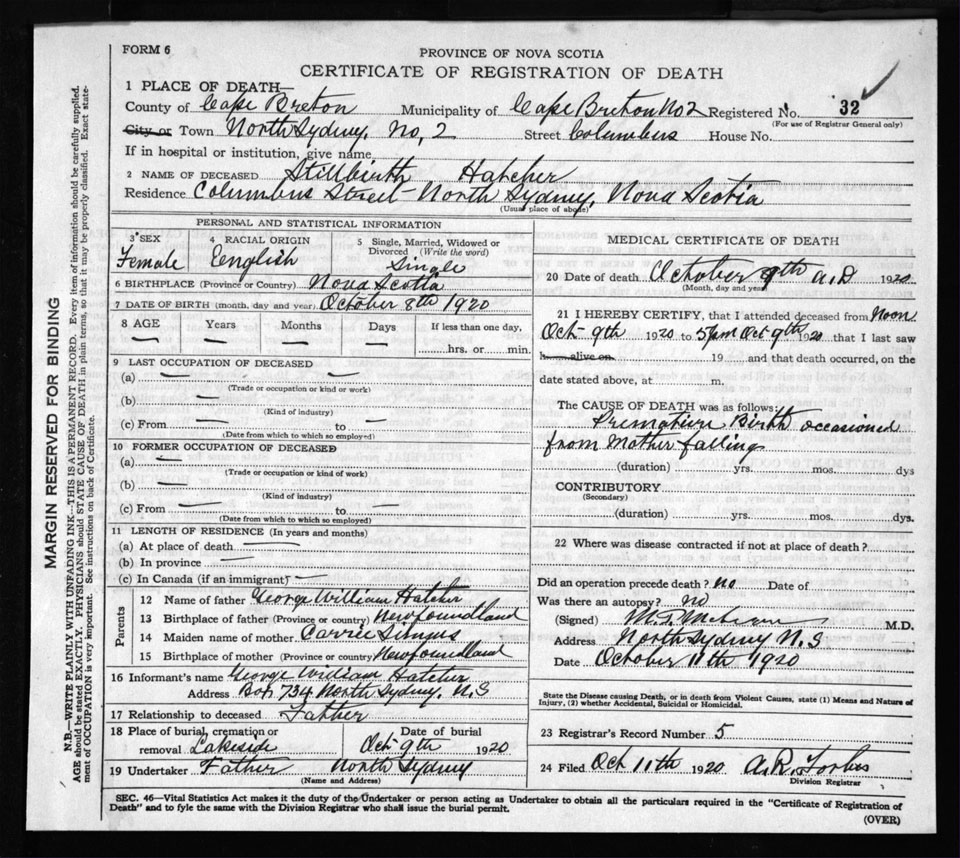 FORM 6
PROVINCE OF NOVA SCOTIA
CERTIFICATE OF REGISTRATION OF DEATH
1 PLACE OF DEATH—
County of Cape Breton Municipality of Cape Breton No 2 Registered No. 32
(For use of Registrar General only)
City or Town North Sydney, No, 2 Street Columbus House No.
If in hospital or institution, give name
2 NAME OF DECEASED Stillbirth Hatcher
Residence Columbus Street - North Sydney, Nova Scotia
(Usual place of abode)
PERSONAL AND STATISTICAL INFORMATION
3 SEX Female
4 RACIAL ORIGIN English
5 Single, Married, Widowed or Divorced (Write the word) Single
6 BIRTHPLACE (Province or Country) Nova Scotia
7 DATE OF BIRTH (month, day and year) October 8th 1920
8 AGE Years Months Days If less than one day,
— — — — hrs. or min.
9 LAST OCCUPATION OF DECEASED
(a) — —
(Trade or occupation or kind or work)
(b) —
(Kind of industry)
(c) From — to —
(Date from which to which so employed)
10 FORMER OCCUPATION OF DECEASED
(a) —
(Trade or occupation or kind of work)
(b) —
(Kind of industry)
(c) From — to —
(Date from which to which so employed)
11 LENGTH OF RESIDENCE (In years and months)
(a) At place of death —
(b) In province —
(c) In Canada (if an immigrant) —
Parents
12 Name of father George William Hatcher
13 Birthplace of father (Province or country) Newfoundland
14 Maiden name of mother Carrie Simms
15 Birthplace of mother (Province or country) Newfoundland
16 Informant's name George William Hatcher
Address Box 734 North Sydney, N.S
17 Relationship to deceased Father
18 Place of burial, cremation or removal Lakeside
Date of burial Oct 9th 1920
19 Undertaker Father North Sydney
(Name and Address)
MEDICAL CERTIFICATE OF DEATH
20 Date of death October 9th A.D 1920
(Month, day and year)
21 I HEREBY CERTIFY, that I attended deceased from Noon
Oct 9th 1920 to 5 pm Oct 9th 1920 that I last saw
h alive on 19 and that death occurred, on the
date stated above, at m.
The CAUSE OF DEATH was as follows:
Premature Birth occasioned
from Mother falling
(duration) yrs. mos. dys
CONTRIBUTORY
(Secondary)
(duration) yrs. mos. dys.
22 Where was disease contracted if not at place of death?
Did an operation precede death? No Date of
Was there an autopsy? no
(Signed) M.D.
Address North Sydney N.S
Date October 11th 1920
State the Disease causing Death, or in death from Violent Causes, state (1) Means and Nature of
Injury, (2) whether Accidental, Suicidal or Homicidal.
23 Registrar's Record Number 5
24 Filed Oct 11th 1920 A.R. Forbes
Division Registrar
SEC. 46—Vital Statistics Act makes it the duty of the Undertaker or person acting as Undertaker to obtain all the particulars required in the "Certificate of Registration of
Death" and to fyle the same with the Division Registrar who shall issue the burial permit.
(OVER)
MARGIN RESERVED FOR BINDING
N.B.—WRITE PLAINLY WITH UNFADING INK—THIS IS A PERMANENT RECORD. Every item of information should be carefully supplied.
AGE should be stated EXACTLY. PHYSICIANS should STATE CAUSE OF DEATH in plain terms, so that it may be properly classified. Exact state-
ment of OCCUPATION is very important. See instructions on back of Certificate.